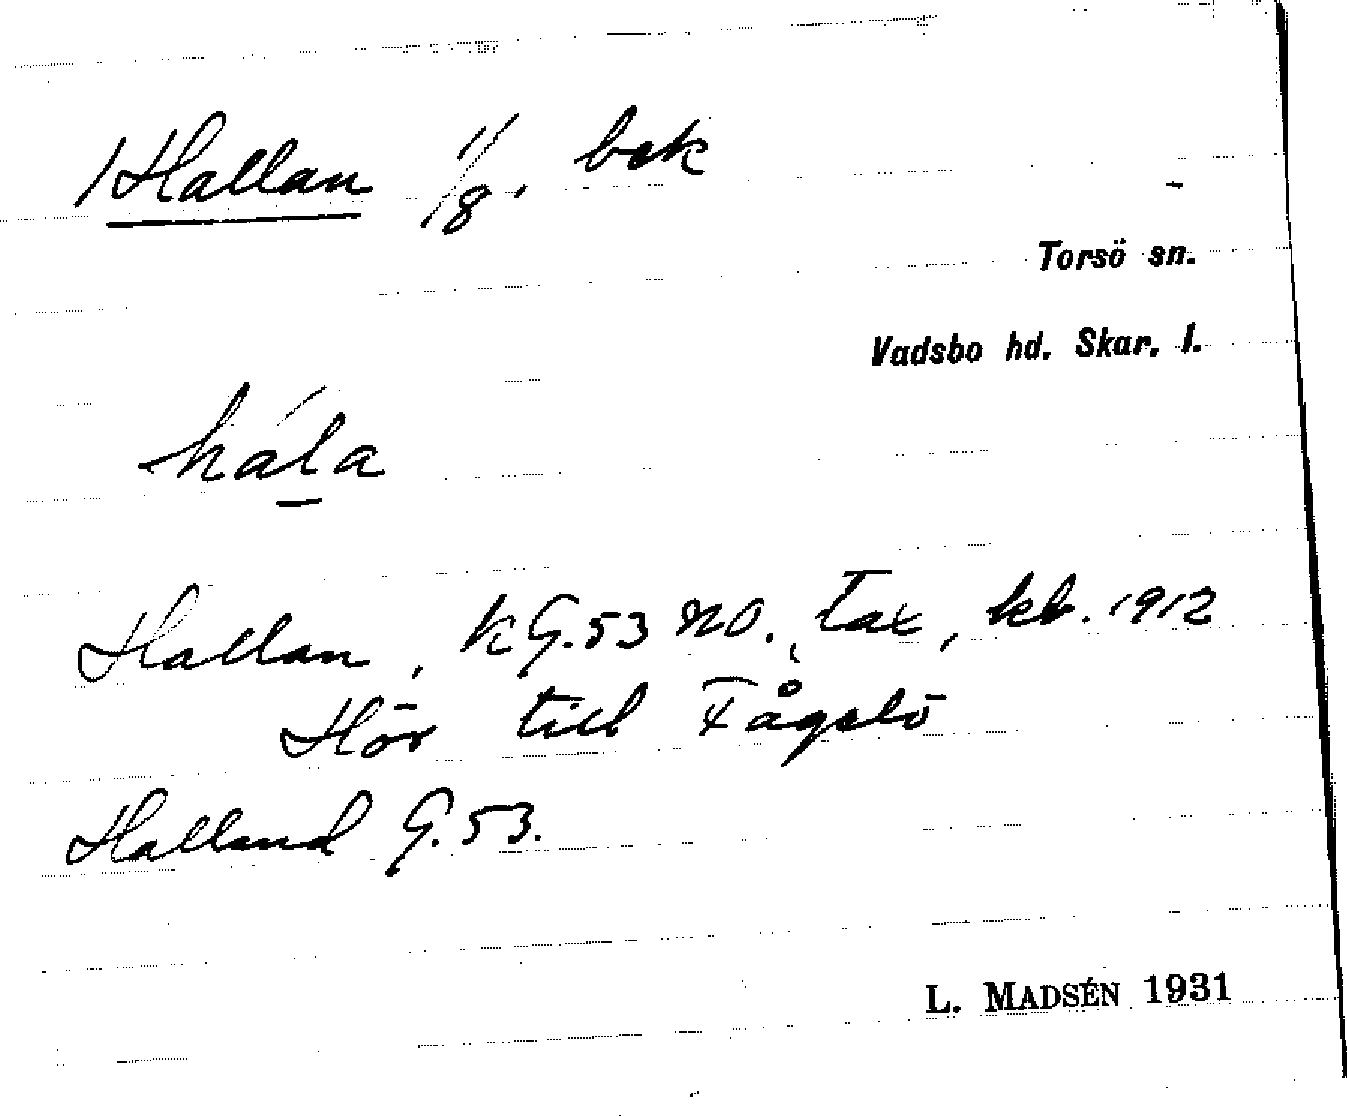 /Hallan 11/18, bek
Torsö sn.
Vadsbo hd. Skar. l.
hála
Hallan, k G.53 NO. Tax, kb. 1912
Hör till Fågelö
Halland G.53.
L. MADSÉN 1931